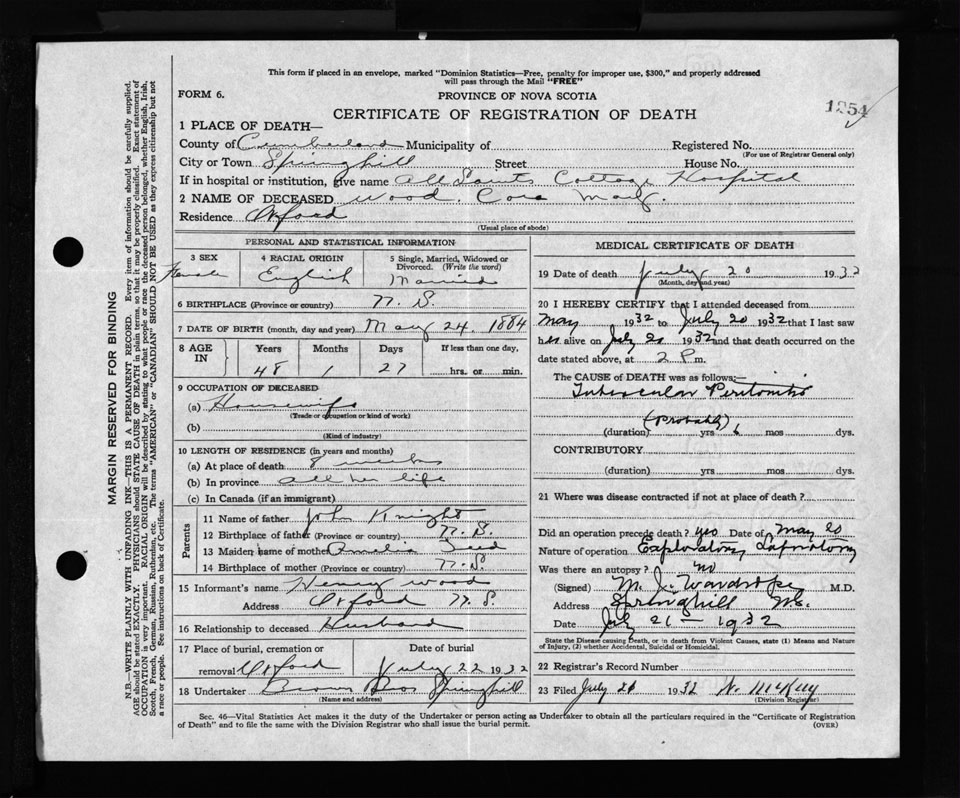 This form if placed in an envelope, marked "Dominion Statistics—Free, penalty for improper use, $300," and properly addressed
will pass through the Mail "FREE"
FORM 6.
PROVINCE OF NOVA SCOTIA
CERTIFICATE OF REGISTRATION OF DEATH
1254
1 PLACE OF DEATH—
County of Cumberland Municipality of Registered No.
(For use of Registrar General only)
City or Town Springhill Street House No.
If in hospital or institution, give name All Saints Cottage Hospital
2 NAME OF DECEASED Wood, Cora May.
Residence Oxford
(Usual place of abode)
PERSONAL AND STATISTICAL INFORMATION
3 SEX
Female
4 RACIAL ORIGIN
English
5 Single, Married, Widowed or
Divorced. (Write the word)
Married
6 BIRTHPLACE (Province or country) N. S.
7 DATE OF BIRTH (month, day and year) May 24. 1884
8 AGE IN
Years Months Days If less than one day,
48 1 27 hrs. or min.
9 OCCUPATION OF DECEASED
(a) Housewife
(Trade or occupation or kind of work)
(b)
(Kind of industry)
10 LENGTH OF RESIDENCE (in years and months)
(a) At place of death 8 weeks
(b) In province all her life
(c) In Canada (if an immigrant)
Parents
11 Name of father John Knight
12 Birthplace of father (Province or country) N. S.
13 Maiden name of mother Amelia
14 Birthplace of mother (Province or country) N. S.
15 Informant's name Henry Wood
Address Oxford N. S.
16 Relationship to deceased Husband
17 Place of burial, cremation or Date of burial
removal Oxford July 22 1932
18 Undertaker Brown Bros Springhill
(Name and address)
MEDICAL CERTIFICATE OF DEATH
19 Date of death July 20 1932
(Month, day and year)
20 I HEREBY CERTIFY that I attended deceased from
May 1932 to July 20 1932 that I last saw
her alive on July 20 1932 and that death occurred on the
date stated above, at 2 P.m.
The CAUSE of DEATH was as follows:—
Tubercular Peritonitis
(Probably)
(duration) yrs 6 mos dys.
CONTRIBUTORY
(duration) yrs mos dys.
21 Where was disease contracted if not at place of death?
Did an operation precede death? yes Date of May 20
Nature of operation Exploratory Laparotomy
Was there an autopsy? no
(Signed) M. J. Wardrope M.D.
Address Springhill N.S.
Date July 21 – 1932
State the Disease causing Death, or in death from Violent Causes, state (1) Means and Nature
of Injury, (2) whether Accidental, Suicidal or Homicidal.
22 Registrar's Record Number
23 Filed July 21 1932 N. McKay
(Division Registrar)
Sec. 46—Vital Statistics Act makes it the duty of the Undertaker or person acting as Undertaker to obtain all the particulars required in the "Certificate of Registration
of Death" and to file the same with the Division Registrar who shall issue the burial permit. (OVER)
MARGIN RESERVED FOR BINDING
N.B.—WRITE PLAINLY WITH UNFADING INK—THIS IS A PERMANENT RECORD. Every item of information should be carefully supplied.
AGE should be stated EXACTLY. PHYSICIANS should STATE CAUSE OF DEATH in plain terms, so that it may be properly classified. Exact statement of
OCCUPATION is very important. RACIAL ORIGIN will be described by stating to what people or race the deceased person belonged, whether English, Irish,
Scotch, French, German, Russian, Ruthenian, etc. The terms "AMERICAN" or "CANADIAN" SHOULD NOT BE USED as they express citizenship but not
a race or people. See instructions on back of Certificate.